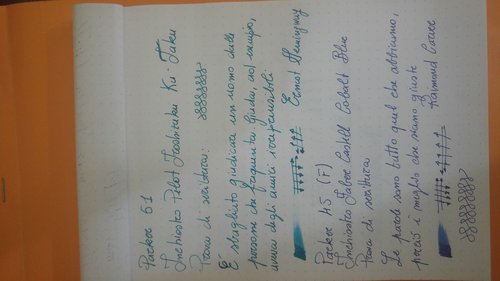 Parker 61
Inchiostro Pilot Iroshizuku Ku-Jaku
Prova di scrittura:
É sbagliato giudicare un uomo dalle
persone che frequenta. Giuda, ad esempio,
aveva degli amici irreprensibili
Ernest Hemingway
Parker 45 (F)
Inchiostro Faber Castell Cobalt Blue
Prova di scrittura
Le parole sono tutto quel che abbiamo,
perciò è meglio che siano giuste
Raimond Carver